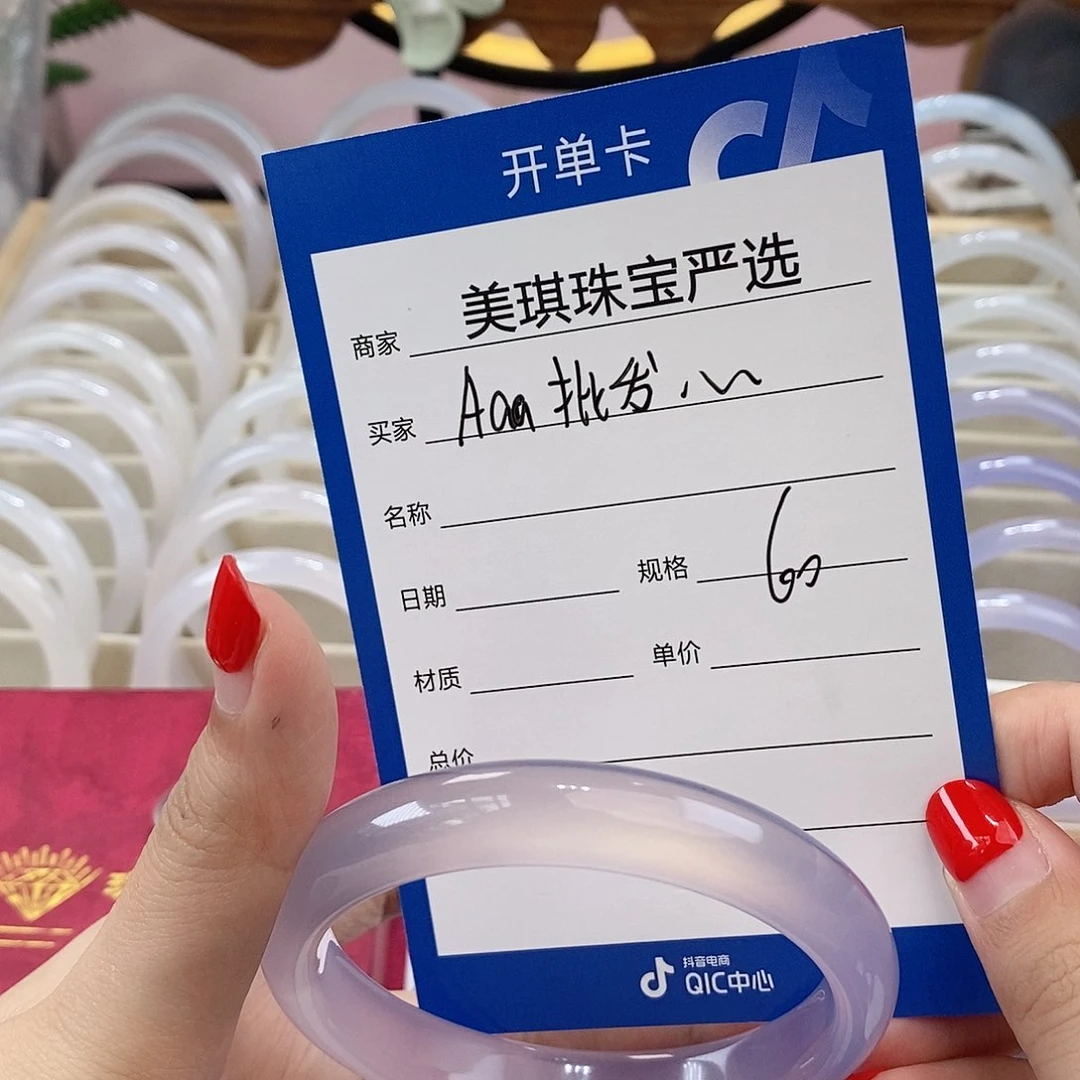 开单卡
商家 美琪珠宝严选
买家 Aaa批发
名称
日期 规格 60
材质 单价
总价
抖音电商
QIC中心